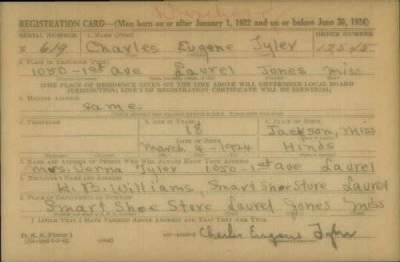 REGISTRATION CARD—(Men born on or after January 1, 1922 and on or before June 30, 1924)
SERIAL NUMBER 1. NAME (Print) ORDER NUMBER
619 Charles Eugene Tyler 12545
2. PLACE OF RESIDENCE (Print)
1050-1st ave Laurel Jones Miss
(THE PLACE OF RESIDENCE GIVEN ON THE LINE ABOVE WILL DETERMINE LOCAL BOARD
JURISDICTION; LINE 2 OF REGISTRATION CERTIFICATE WILL BE IDENTICAL)
3. MAILING ADDRESS
same
4. TELEPHONE 5. AGE IN YEARS 6. PLACE OF BIRTH
18 Jackson, Miss
DATE OF BIRTH
March 4-1924 Hinds
7. NAME AND ADDRESS OF PERSON WHO WILL ALWAYS KNOW YOUR ADDRESS
Mrs. Tyler 1050-1st ave Laurel
8. EMPLOYER'S NAME AND ADDRESS
H. B. Williams, Smart Shoe Store Laurel
9. PLACE OF EMPLOYMENT OR BUSINESS
Smart Shoe Store Laurel Jones Miss
I AFFIRM THAT I HAVE VERIFIED ABOVE ANSWERS AND THAT THEY ARE TRUE.
D. S. S. Form 1
Charles Eugene Tyler